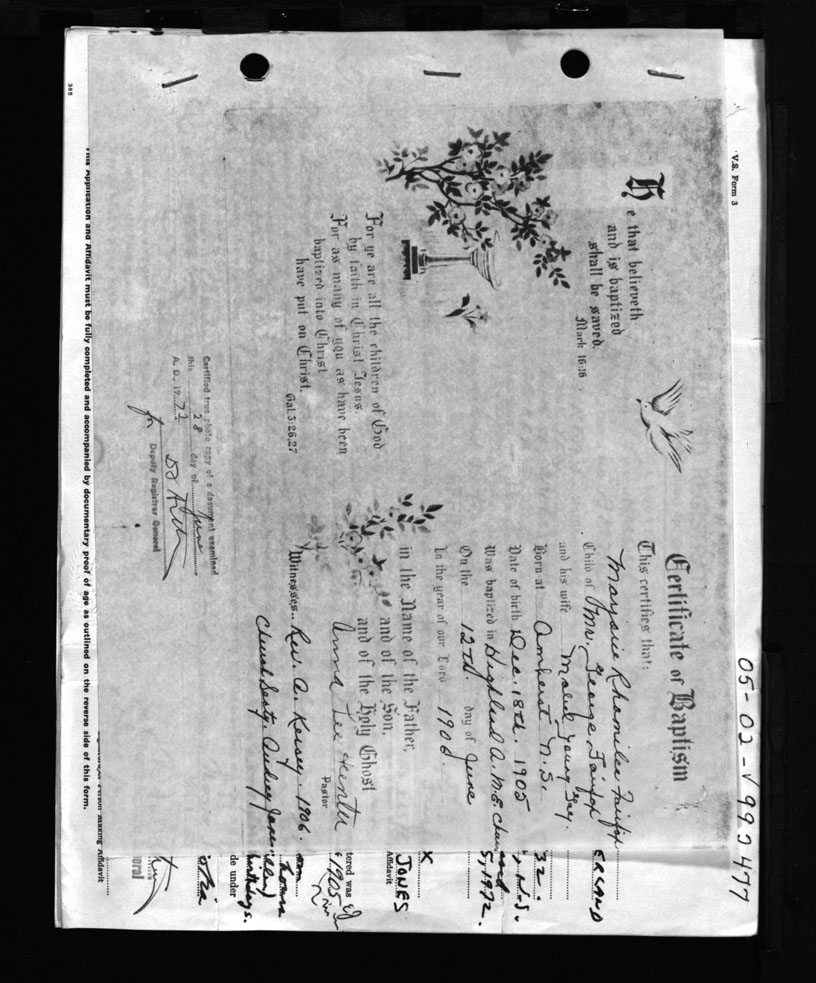 05-02-V992477
V.S. Form 3
He that believeth
and is baptized
shall be saved.
Mark 16:16
For ye are all the children of God
by faith in Christ Jesus.
For as many of you as have been
baptized into Christ
have put on Christ.
Gal. 3:26,27
Certificate of Baptism
This certifies that:
Marjorie Fairfax
Child of Mr. George Fairfax
and his wife Young Gay.
Born at Amherst N.S.
Date of birth Dec. 18th. 1905
Was baptized in Highland A.M.E. Church
On the 12th. day of June
In the year of our Lord 1906.
in the Name of the Father,
and of the Son,
and of the Holy Ghost
Anna Lee Hunter
Pastor
Witnesses.. Rev. A. Kersey. 1906.
Church Audrey Jones
Certified true photo copy of a document examined
this 28 day of June
A.D. 19 72
for Deputy Registrar General
ERLAND
32.
N.S.
5, 1972.
X
JONES
Affidavit
tered was
1905
birthdays.
de under
Making Affidavit
This Application and Affidavit must be fully completed and accompanied by documentary proof of age as outlined on the reverse side of this form.